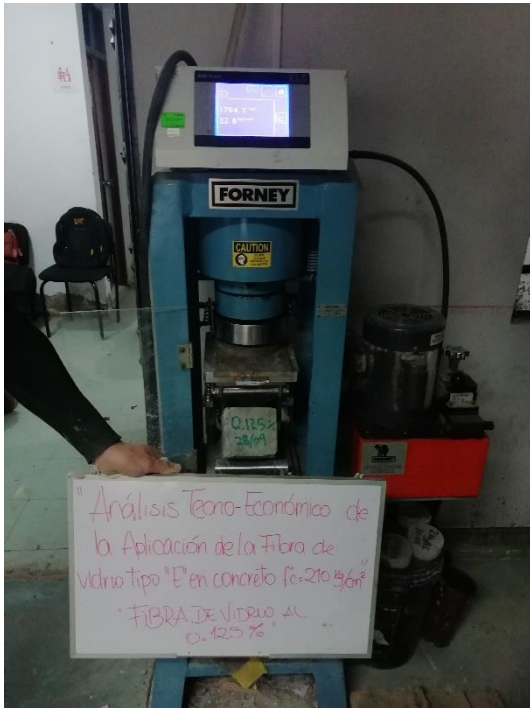 FORNEY
CAUTION
0.125%
28/09
"Análisis Tecno-Económico de
la Aplicación de la Fibra de
vidrio tipo "E" en concreto f'c=210 kg/cm²"
"FIBRA DE VIDRIO AL
0.125%"